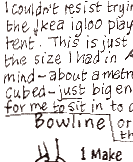 I couldn't resist tryin
the Ikea igloo play
tent. This is just
the size I had in A
mind-about a metre
cubed-just big en
for me to sit in to c
Bowline
or
th
I Make